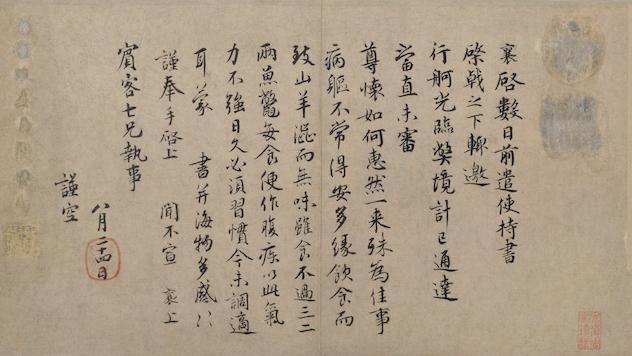 襄啓數日前遣使持書
棨戟之下輒邀
行舸光臨弊境計已通達
當直未審
尊懷如何惠然一来殊為佳事
病軀不常得安多緣飲食而
致山羊澀而無味雖食不過三二
兩魚鱉每食便作腹疾以此氣
力不強日久必須習慣今未調適
耳蒙 書并海物多感〻
謹奉手啓上 聞不宣 襄上
賓客七兄執事
八月二十四日
謹空